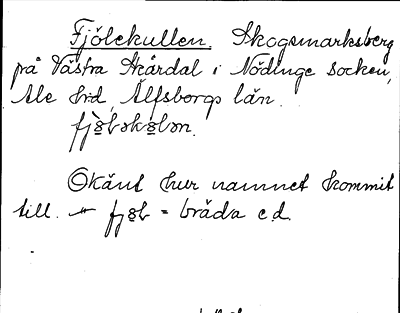 Fjölekullen. Skogsmarksberg
på Västra Skårdal i Nödinge socken,
Ale hrd, Älfsborgs län.
Okänt hur namnet kommit
till. = bråda e.d.